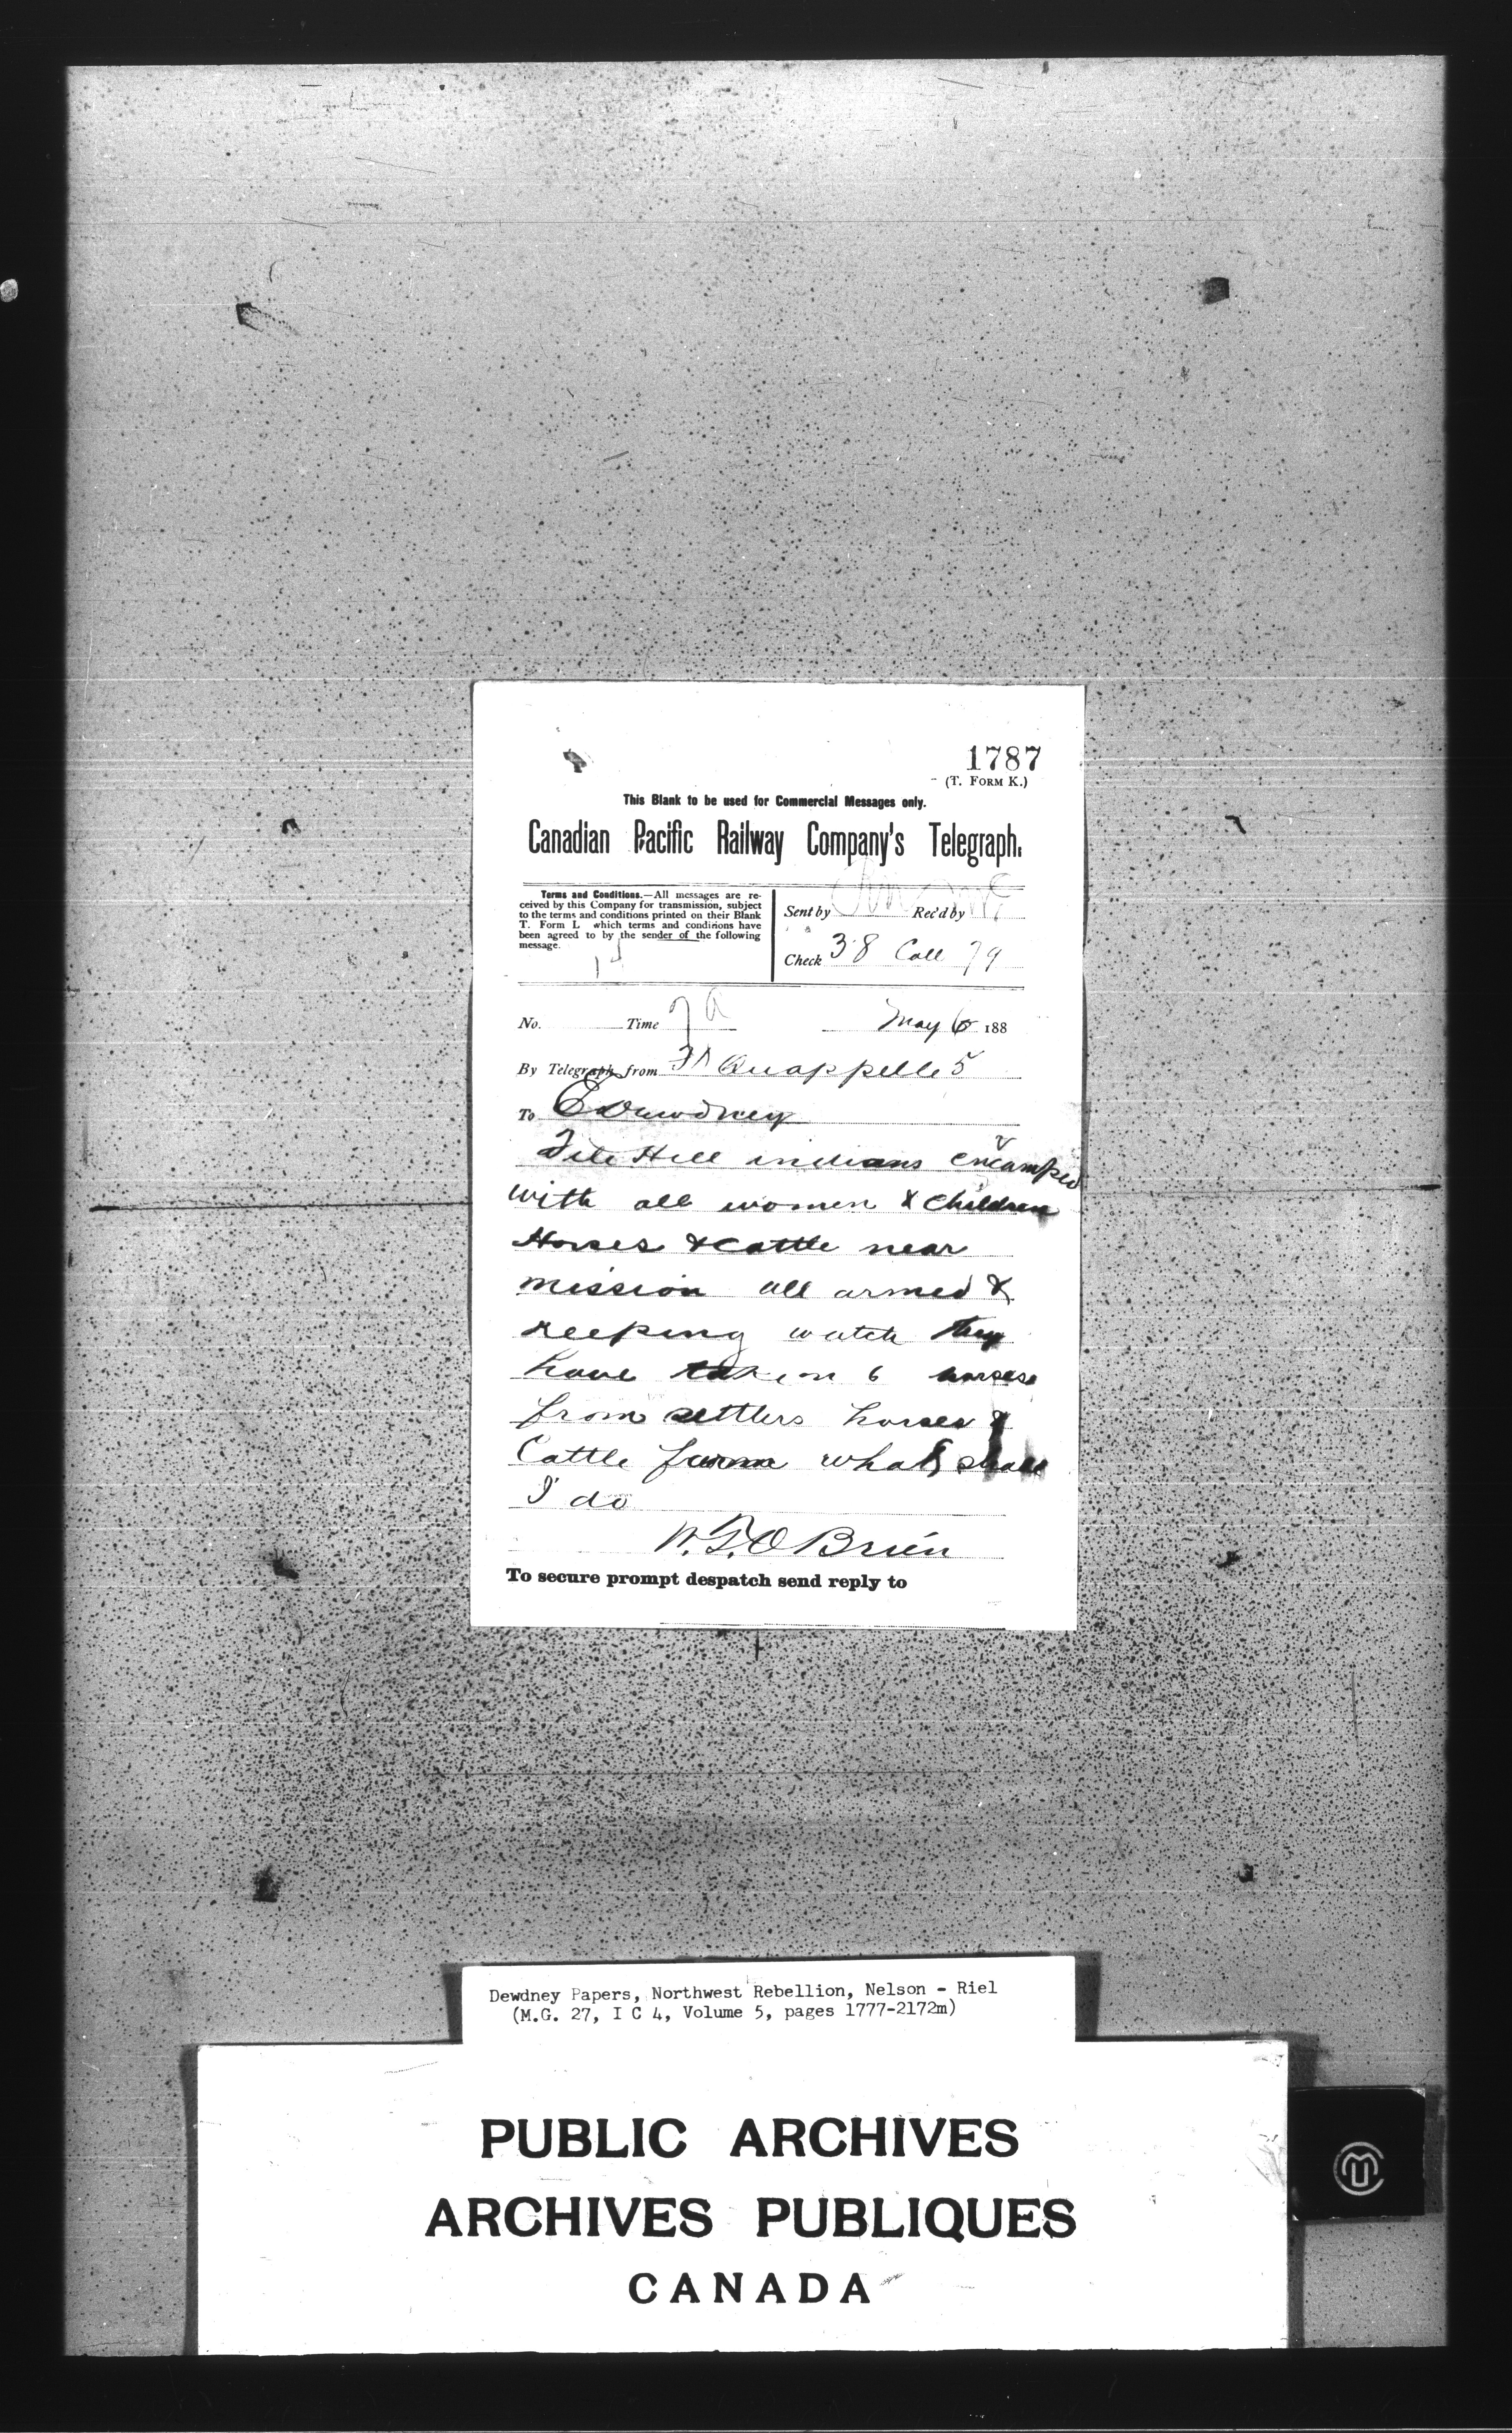 1787
(T. FORM K.)
This Blank to be used for Commercial Messages only.
Canadian Pacific Railway Company's Telegraph.
Terms and Conditions.—All messages are re-
ceived by this Company for transmission, subject
to the terms and conditions printed on their Blank
T. Form L which terms and conditions have
been agreed to by the sender of the following
message.
Sent by Rec'd by
Check 38 Coll 79
No. Time May 6 188
By Telegraph from Ft Quappelle 5
To E Dewdney
File Hill indians encamped
with all women & children
Horses & cattle near
mission all armed &
keeping watch they
have taken 6 horses
from settlers horses &
Cattle from what shall
I do
W.S. O Brien
To secure prompt despatch send reply to
Dewdney Papers, Northwest Rebellion, Nelson - Riel
(M.G. 27, I C 4, Volume 5, pages 1777-2172m)
PUBLIC ARCHIVES
ARCHIVES PUBLIQUES
CANADA